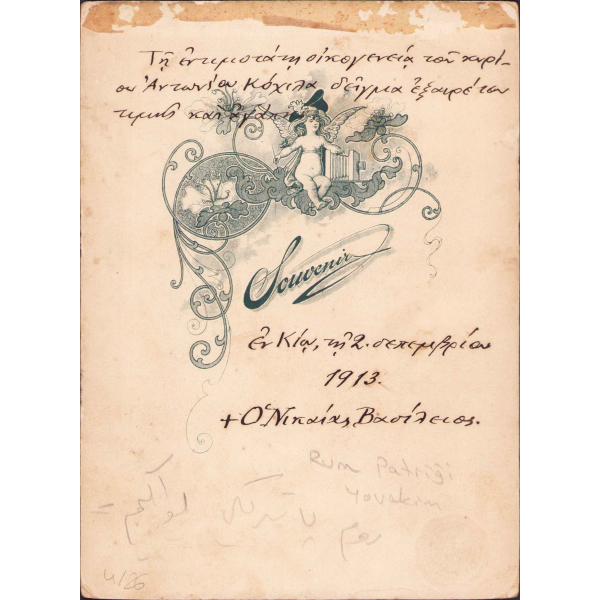 Τῇ ἐντιμοτάτῃ οἰκογενείᾳ τοῦ κυρί-
ου Ἀντωνίου Κόχιλα δεῖγμα ἐξαιρέτου
τιμῆς καὶ ἀγάπης
Souvenir
ἐν Κίῳ, τῇ 2. σεπτεμβρίου
1913.
+ Ὁ Νικαίας Βασίλειος.
Rum Patriği
Yovakim
روم پاتریکی
4/86